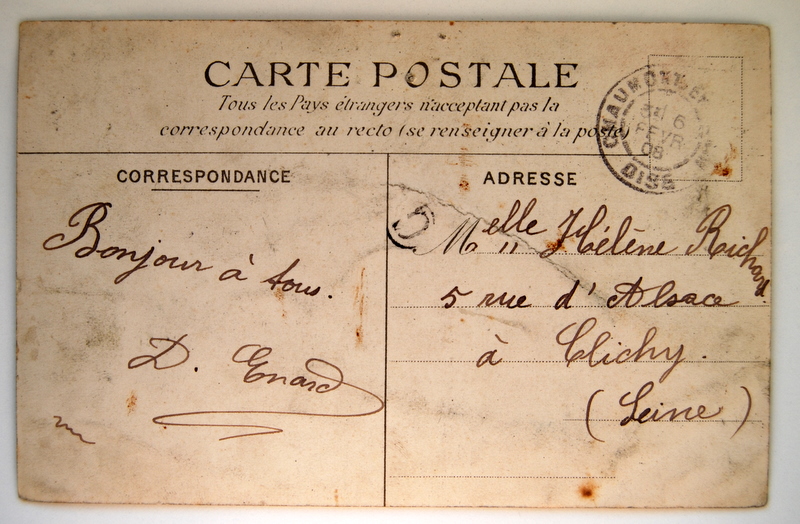 CARTE POSTALE
Tous les Pays étrangers n'acceptant pas la
correspondance au recto (se renseigner à la poste)
CHAUMONT-EN-VEXIN
6
FEVR
08
OISE
CORRESPONDANCE
ADRESSE
5
Melle Hélène Richard
5 rue d'Alsace
à Clichy.
(Seine)
Bonjour à tous.
D. Enard